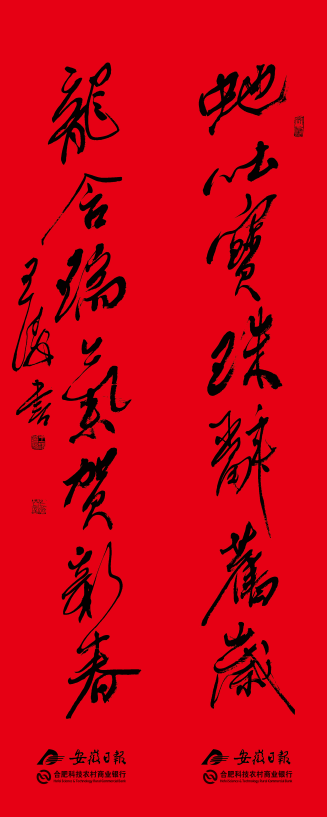 虵吐寶珠辭舊歲
龍含瑞氣賀新春
安徽日報
合肥科技农村商业银行
安徽日報
合肥科技农村商业银行